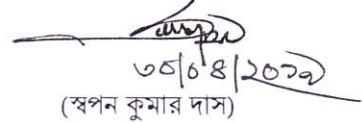 ৩০/০৪/২০১৯
(স্বপন কুমার দাস)